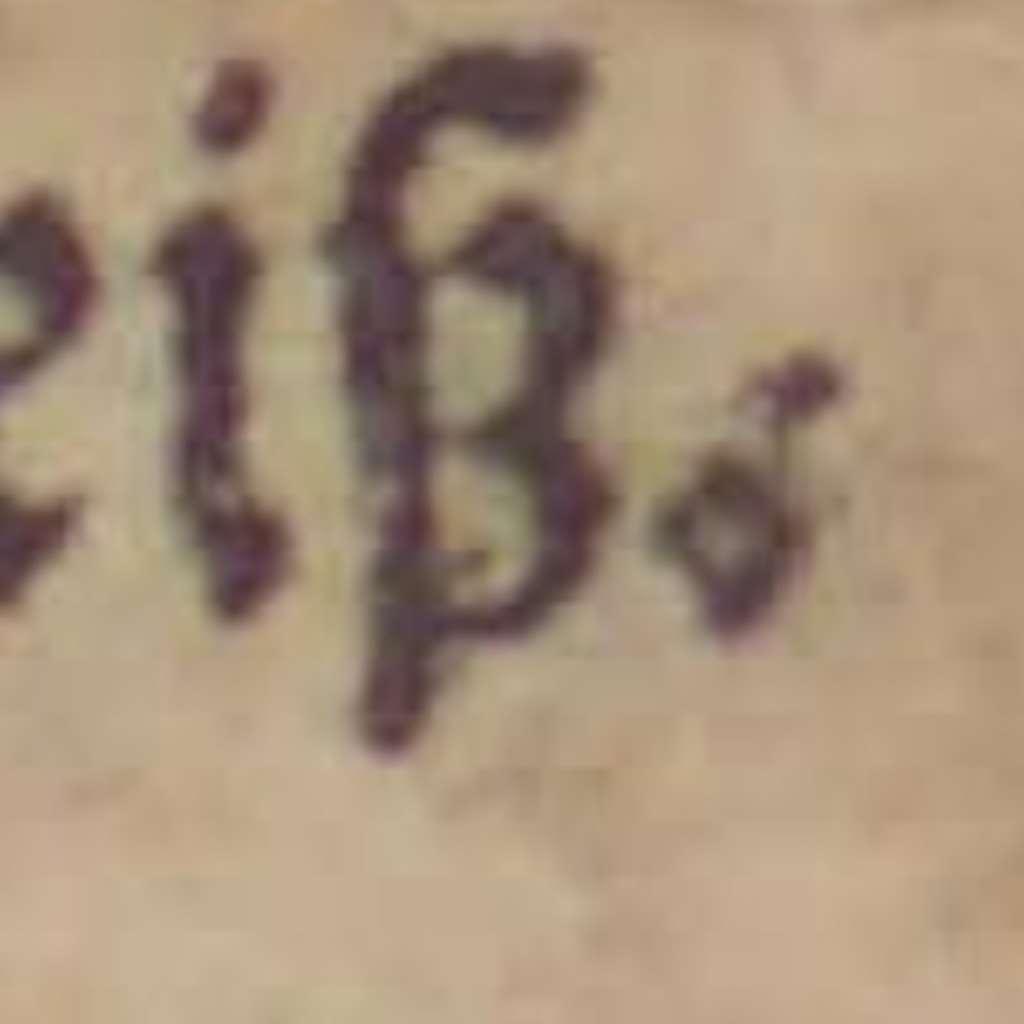 eiß.